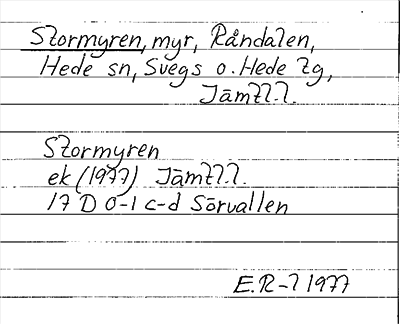 Stormyren, myr, Råndalen,
Hede sn, Svegs o. Hede tg,
Jämtl.l.
Stormyren
ek (1977) Jämtl.l.
17 D 0-1 c-d Sörvallen
E.R-l 1977